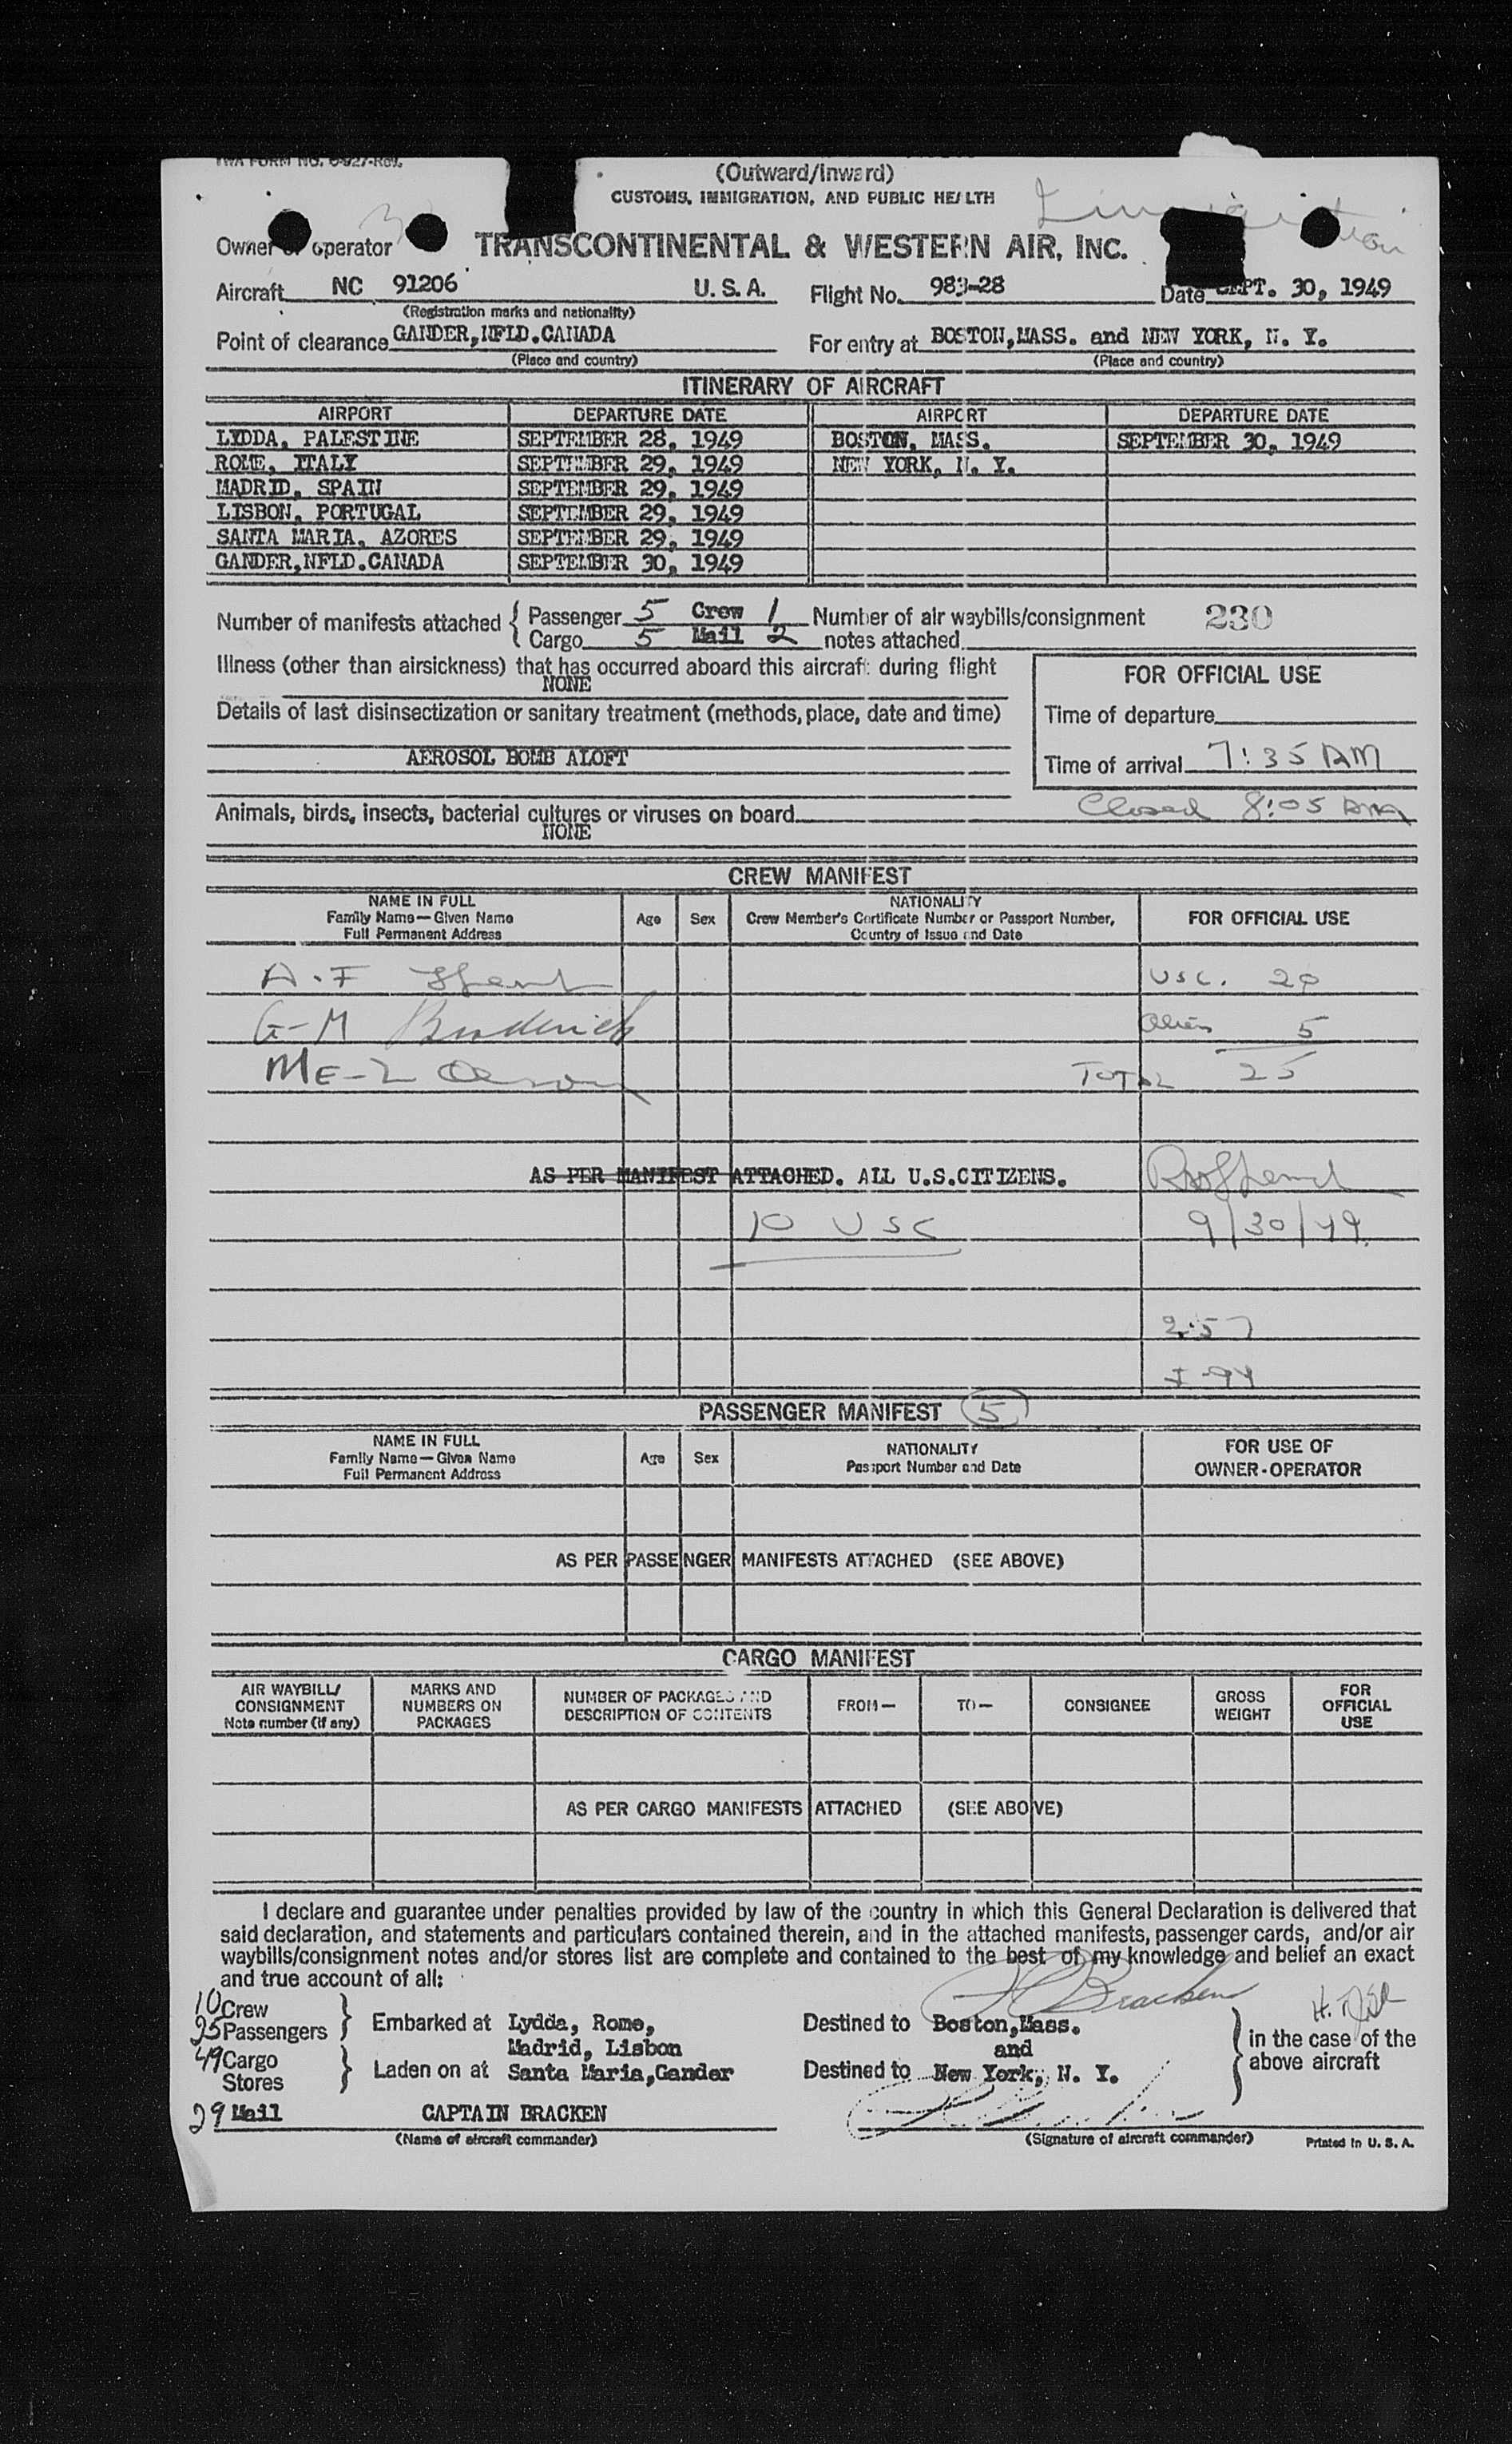 TWA FORM NO. C-927-Rev.
(Outward/Inward)
CUSTOMS, IMMIGRATION, AND PUBLIC HEALTH
Immigration
Owner or operator TRANSCONTINENTAL & WESTERN AIR, INC.
Aircraft NC 91206 U. S. A. Flight No. 983-28 Date SEPT. 30, 1949
(Registration marks and nationality)
Point of clearance GANDER,NFLD.CANADA For entry at BOSTON,MASS. and NEW YORK, N. Y.
(Place and country) (Place and country)
ITINERARY OF AIRCRAFT
AIRPORT DEPARTURE DATE AIRPORT DEPARTURE DATE
LYDDA, PALESTINE SEPTEMBER 28, 1949 BOSTON, MASS. SEPTEMBER 30, 1949
ROME, ITALY SEPTEMBER 29, 1949 NEW YORK, N. Y.
MADRID, SPAIN SEPTEMBER 29, 1949
LISBON, PORTUGAL SEPTEMBER 29, 1949
SANTA MARIA, AZORES SEPTEMBER 29, 1949
GANDER,NFLD.CANADA SEPTEMBER 30, 1949
Number of manifests attached { Passenger 5 Crew 1 Number of air waybills/consignment 230
Cargo 5 Mail 2 notes attached
Illness (other than airsickness) that has occurred aboard this aircraft during flight
NONE
FOR OFFICIAL USE
Details of last disinsectization or sanitary treatment (methods, place, date and time)
Time of departure
AEROSOL BOMB ALOFT
Time of arrival 7:35 AM
Animals, birds, insects, bacterial cultures or viruses on board Closed 8:05 AM
NONE
CREW MANIFEST
NAME IN FULL
Family Name—Given Name
Full Permanent Address
Age Sex
NATIONALITY
Crew Member's Certificate Number or Passport Number,
Country of Issue and Date
FOR OFFICIAL USE
A-F USC. 20
G-M Broderick Alien 5
ME-Z Olson TOTAL 25
AS PER MANIFEST ATTACHED. ALL U.S.CITIZENS.
10 USC 9/30/49
257
I-94
PASSENGER MANIFEST 5
NAME IN FULL
Family Name—Given Name
Full Permanent Address
Age Sex
NATIONALITY
Passport Number and Date
FOR USE OF
OWNER-OPERATOR
AS PER PASSENGER MANIFESTS ATTACHED (SEE ABOVE)
CARGO MANIFEST
AIR WAYBILL/
CONSIGNMENT
Note number (if any)
MARKS AND
NUMBERS ON
PACKAGES
NUMBER OF PACKAGES AND
DESCRIPTION OF CONTENTS
FROM— TO— CONSIGNEE
GROSS
WEIGHT
FOR
OFFICIAL
USE
AS PER CARGO MANIFESTS ATTACHED (SEE ABOVE)
I declare and guarantee under penalties provided by law of the country in which this General Declaration is delivered that
said declaration, and statements and particulars contained therein, and in the attached manifests, passenger cards, and/or air
waybills/consignment notes and/or stores list are complete and contained to the best of my knowledge and belief an exact
and true account of all:
Bracken
10 Crew
25 Passengers } Embarked at Lydda, Rome, Destined to Boston,Mass.
Madrid, Lisbon and
49 Cargo
Stores } Laden on at Santa Maria,Gander Destined to New York, N. Y.
in the case of the
above aircraft
29 Mail CAPTAIN BRACKEN
(Name of aircraft commander) (Signature of aircraft commander) Printed in U. S. A.